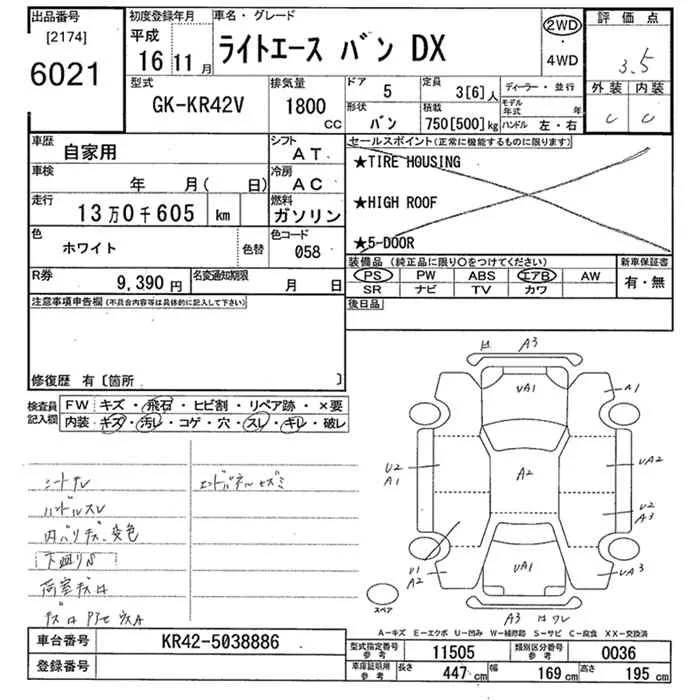 出品番号
[2174]
6021
初度登録年月
平成
16 11月
車名・グレード
ライトエース バン DX
2WD
4WD
評価点
3.5
外装 内装
C C
型式
GK-KR42V
排気量
1800
CC
ドア
5
定員
3[6]人
形状
バン
積載
750[500]kg
ディーラー・並行
モデル年式 年
ハンドル 左・右
車歴
自家用
シフト
AT
車検
年 月( 日)
冷房
AC
走行
13万0千605 km
燃料
ガソリン
色
ホワイト
色替
色コード
058
R券
9,390円
名変通知期限
月 日
セールスポイント(正常に機能するものに限ります)
★TIRE HOUSING
★HIGH ROOF
★5-DOOR
装備品 (純正品に限り○をつけてください)
PS PW ABS エアB AW
SR ナビ TV カワ
新車保証書
有・無
後日品
注意事項申告欄(不具合内容等は具体的に記入して下さい)
修復歴 有〔箇所 〕
検査員記入欄
FW キズ・飛石・ヒビ割・リペア跡・×要
内装 キズ・汚レ・コゲ・穴・スレ・キレ・破レ
シートヤレ
ハンドルスレ
内バリキズ、変色
下廻りサ
荷室キズ凹
エンドパネルキズミ
A3
UA1
A1
U2
A1
A2
UA2
U2
A3
U1
A2
UA1
UA3
A3
スペア
A−キズ E−エクボ U−凹み W−補修跡 S−サビ C−腐食 XX−交換済
車台番号
KR42-5038886
登録番号
型式指定番号
参考
11505
類別区分番号
参考
0036
車庫証明用
参考
長さ 447 cm
幅 169 cm
高さ 195 cm